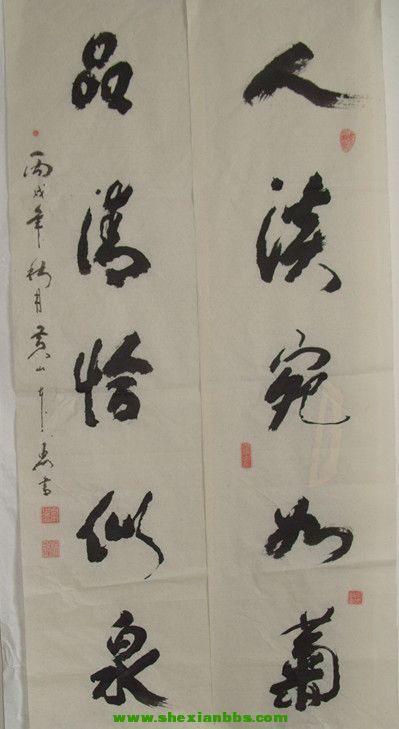 人淡宛如
品清恰似泉
丙戌年秋月黄山
www.shexianbbs.com